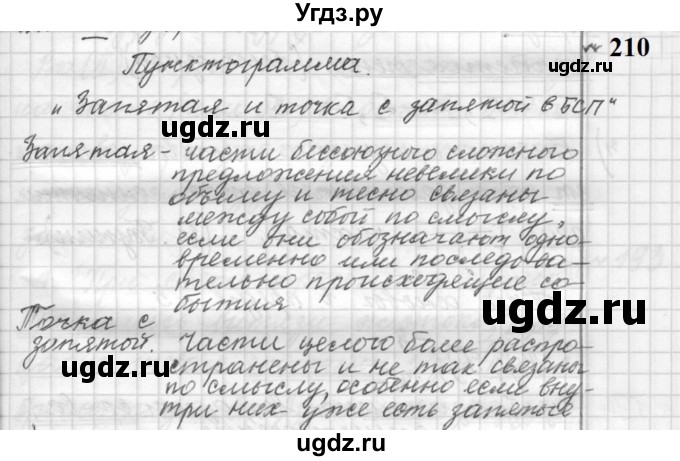 Угдз.ру
210
Пунктограмма.
„Запятая и точка с запятой в БСП"
Запятая - части бессоюзного сложного
предложения невелики по
объему и тесно связаны
между собой по смыслу,
если они обозначают одно-
временно или последова-
тельно происходящие со
бытия
Точка с
запятой. Части целого более распро-
странены и не так связаны
по смыслу, особенно если вну-
три них уже есть запятые
угдз.ру
угдз.ру
угдз.ру
угдз.ру
угдз.ру